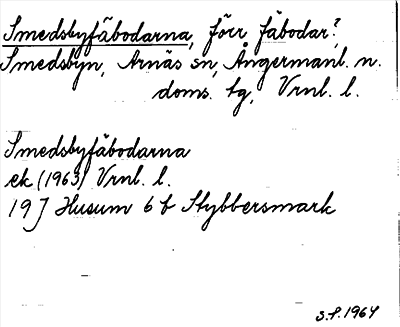 Smedsbyfäbodarna, förr fäbodar?,
Smedsbyn, Arnäs sn, Ångermanl. n.
doms. tg, Vrnl. l.
Smedsbyfäbodarna
ek (1963) Vrnl. l.
19J Husum 6 b Stybbersmark
S.P. 1964